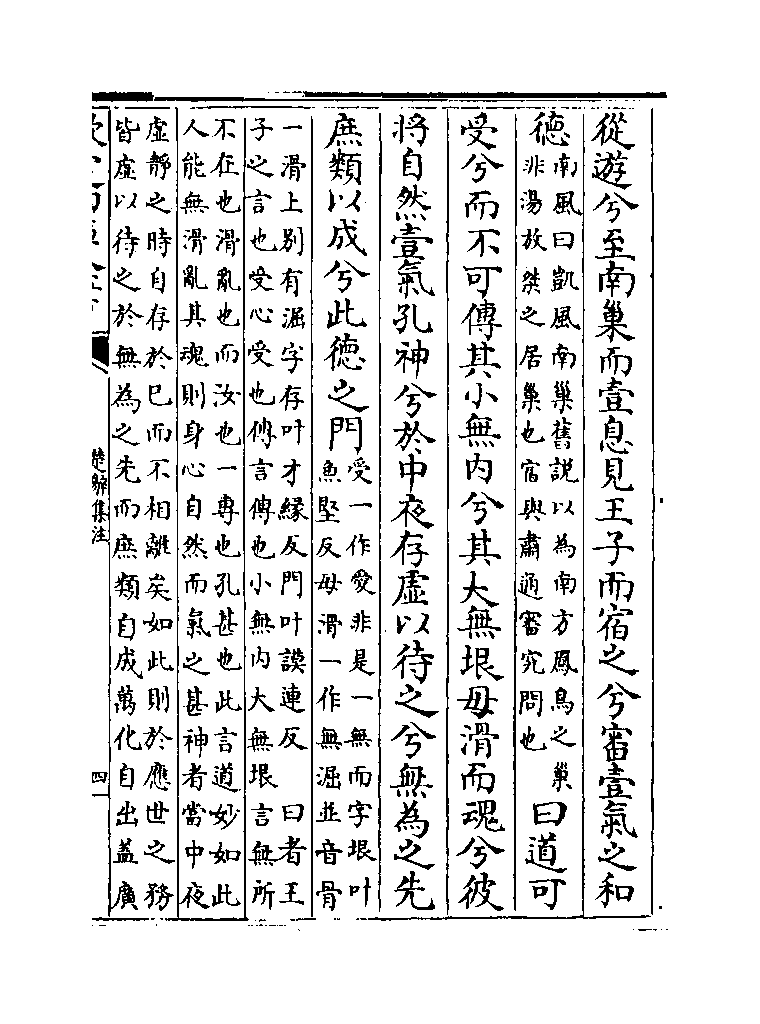 從遊兮至南巢而壹息見王子而宿之兮審壹氣之和
德
南風曰凱風南巢舊説以為南方鳳鳥之巢
非湯放桀之居巢也宿與肅通審究問也
曰道可
受兮而不可傳其小無内兮其大無垠毋滑而魂兮彼
將自然壹氣孔神兮於中夜存虛以待之兮無為之先
庶類以成兮此德之門
受一作愛非是一無而字垠叶
魚堅反毋滑一作無淈並音骨
一滑上别有淈字存叶才緣反門叶謨連反 曰者王
子之言也受心受也傳言傳也小無内大無垠言無所
不在也滑亂也而汝也一專也孔甚也此言道妙如此
人能無滑亂其魂則身心自然而氣之甚神者當中夜
虛靜之時自存於已而不相離矣如此則於應世之務
皆虛以待之於無為之先而庶類自成萬化自出蓋廣
楚辭集注
四